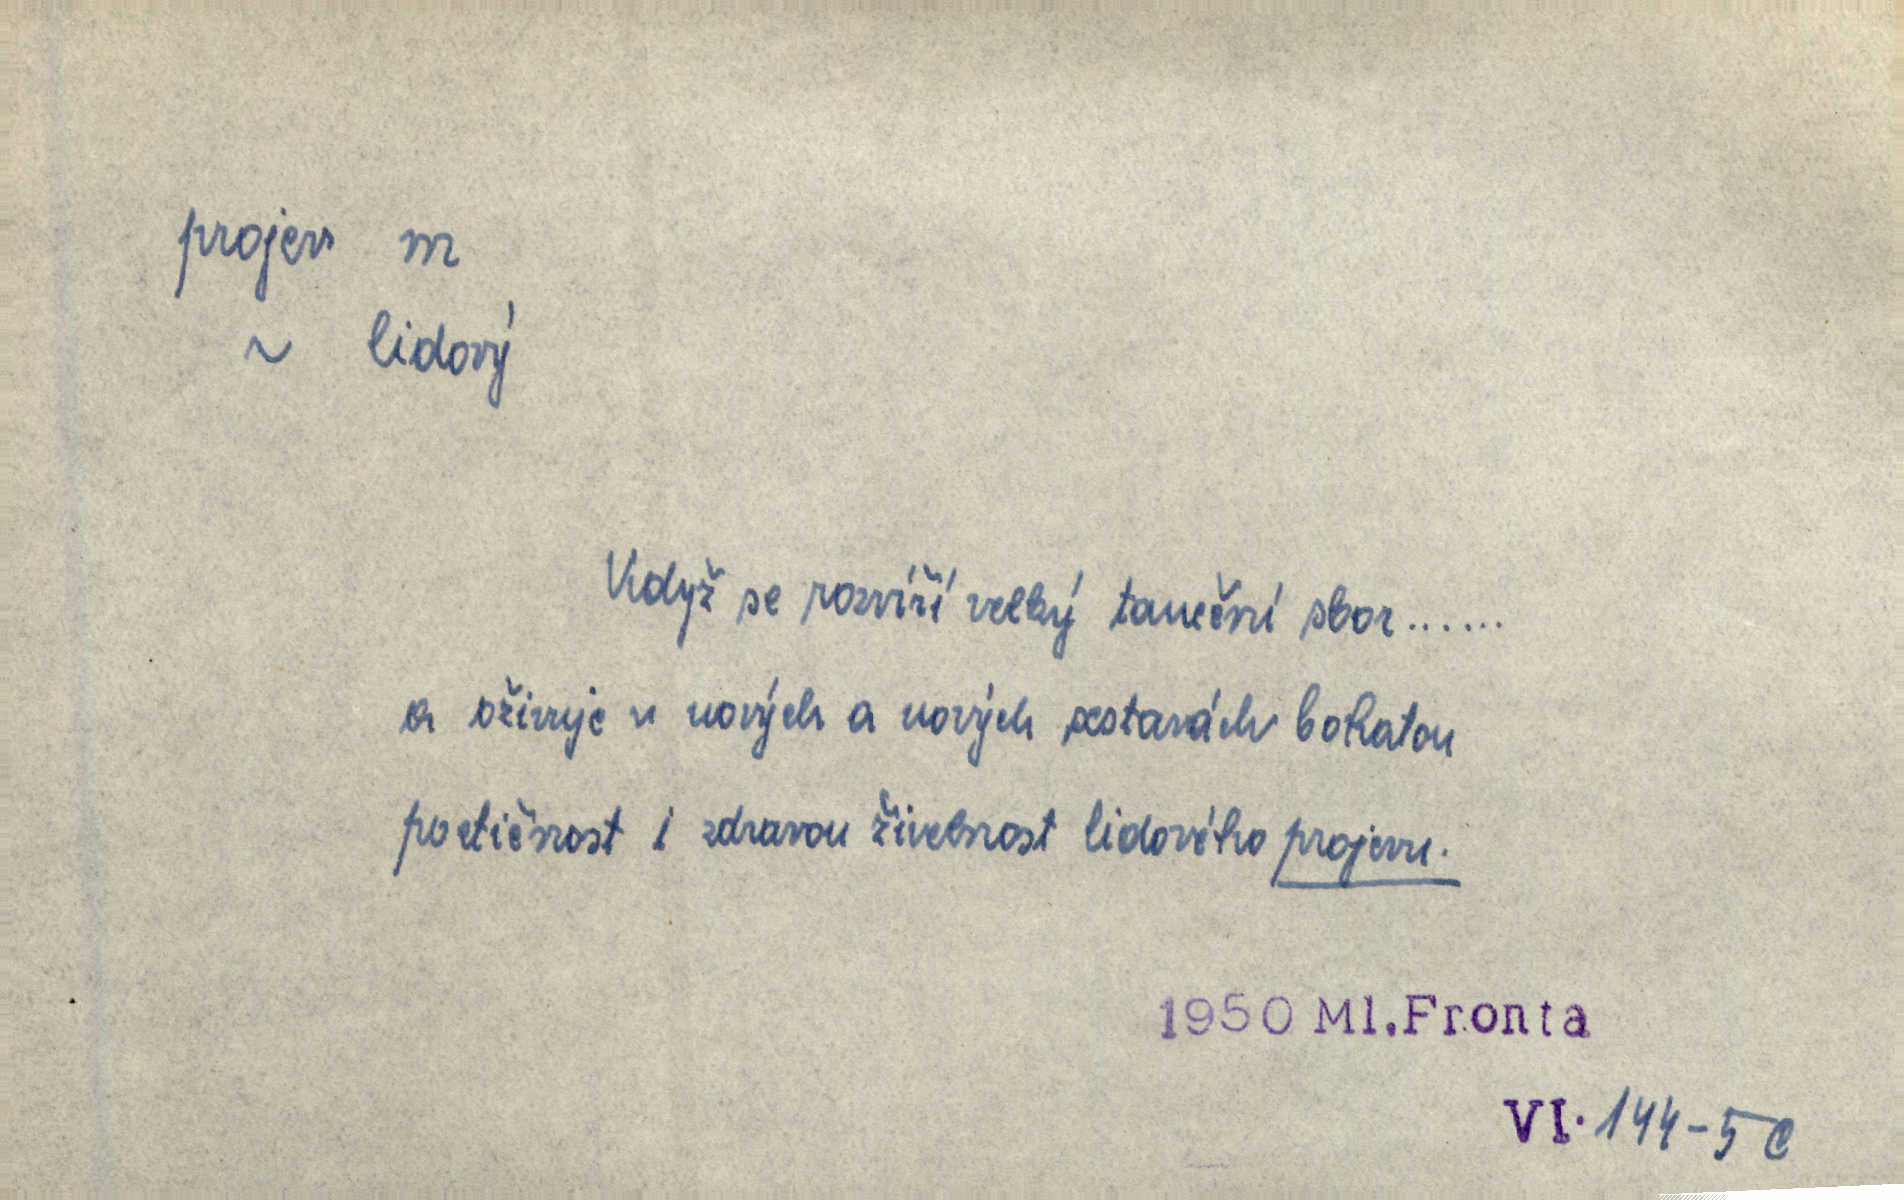 projev m
~ lidový
Když se rozvíří velký taneční sbor......
a oživuje v nových a nových sestavách bohatou
poetičnost i zdravou živelnost lidového projevu.
1950 Ml.Fronta
VI. 144-5 c